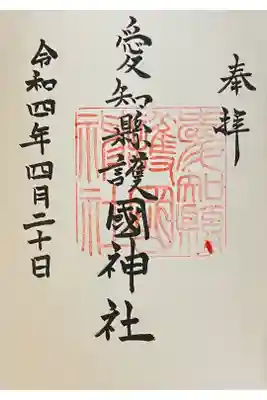 奉拝
愛知縣護國神社
愛知縣護國神社
令和四年四月二十日